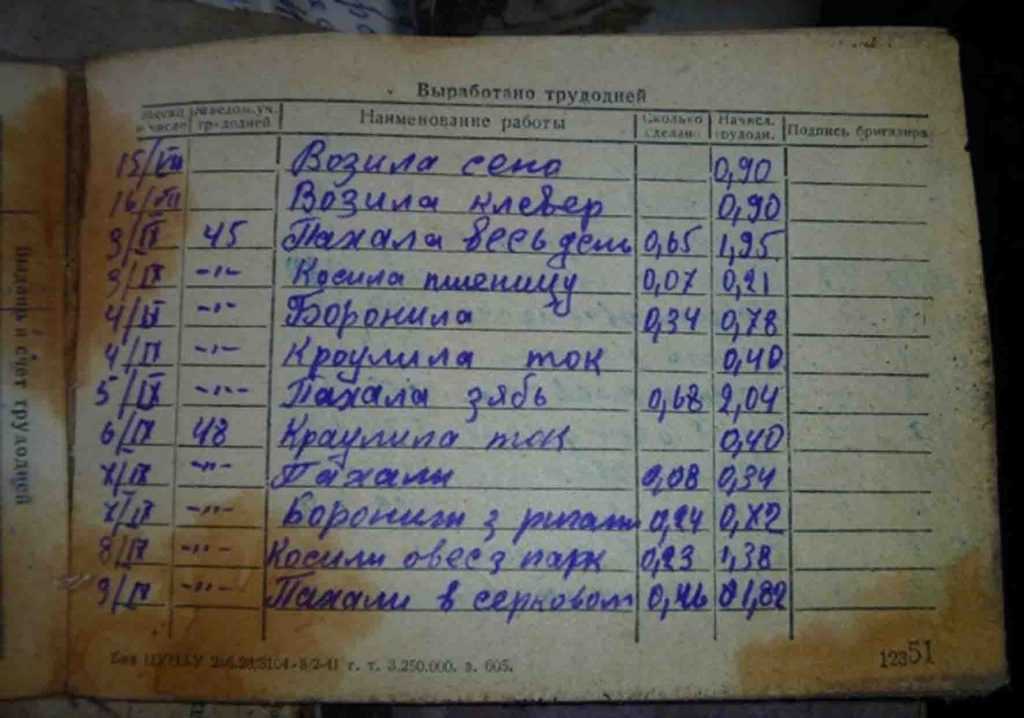 Выработано трудодней
Месяц и число № ведом. уч. трудодней Наименование работы Сколько сделано Начисл. трудодн. Подпись бригадира
15/VIII Возила сено 0,90
16/VIII Возила клевер 0,90
3/IX 45 Пахала весь день 0,65 1,95
3/IX -"- Косила пшеницу 0,07 0,21
4/IX -"- Боронила 0,34 0,78
4/IX -"- Кроулила ток 0,40
5/IX -"- Пахала зябь 0,68 2,04
6/IX 48 Краулила ток 0,40
7/IX -"- Пахали 0,08 0,34
7/IX -"- Боронили з 0,24 0,72
8/IX -"- Косили овес з парк 0,23 1,38
9/IX -"- Пахали в серковом 0,46 1,82
Видань и счет трудодней
г. т. 3.250.000. з. 605.
12351